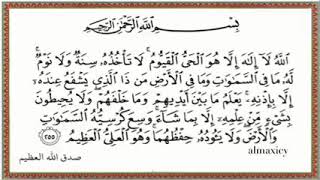 بِسْمِ اللَّهِ الرَّحْمَٰنِ الرَّحِيمِ
اللَّهُ لَا إِلَٰهَ إِلَّا هُوَ الْحَيُّ الْقَيُّومُ ۚ لَا تَأْخُذُهُ سِنَةٌ وَلَا نَوْمٌ ۚ
لَهُ مَا فِي السَّمَاوَاتِ وَمَا فِي الْأَرْضِ مَن ذَا الَّذِي يَشْفَعُ عِندَهُ
إِلَّا بِإِذْنِهِ ۚ يَعْلَمُ مَا بَيْنَ أَيْدِيهِمْ وَمَا خَلْفَهُمْ ۖ وَلَا يُحِيطُونَ
بِشَيْءٍ مِّنْ عِلْمِهِ إِلَّا بِمَا شَاءَ ۚ وَسِعَ كُرْسِيُّهُ السَّمَاوَاتِ
وَالْأَرْضَ ۖ وَلَا يَئُودُهُ حِفْظُهُمَا ۚ وَهُوَ الْعَلِيُّ الْعَظِيمُ ٢٥٥
almaxicy
صدق الله العظيم